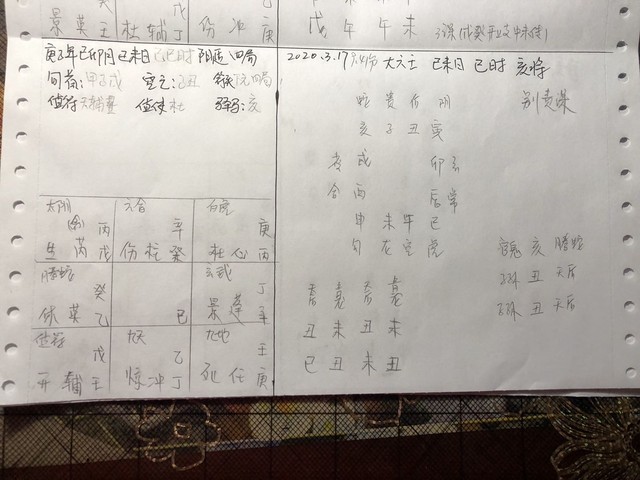 景英壬 杜辅丁 伤冲庚
戊午午未
庚子年己卯月己未日己巳时 阳遁四局
旬首:甲子戊 空亡:
值符天辅 值使杜 驿马:亥
太阴 六合 白虎
丙 辛 庚
生芮戊 伤柱癸 杜心丙
腾蛇 玄武
癸 丁
休英乙 己 景蓬辛
值符 九天 九地
戊 乙 壬
开辅壬 惊冲丁 死任庚
2020.3.17 大六壬 己未日 巳时 亥将
蛇贵后阴 别责课
亥子丑寅
戌 卯玄
合酉 辰常
申未午巳
勾龙空虎
官鬼 亥 腾蛇
丑 天后
丑 天后
丑未丑未
己丑未丑